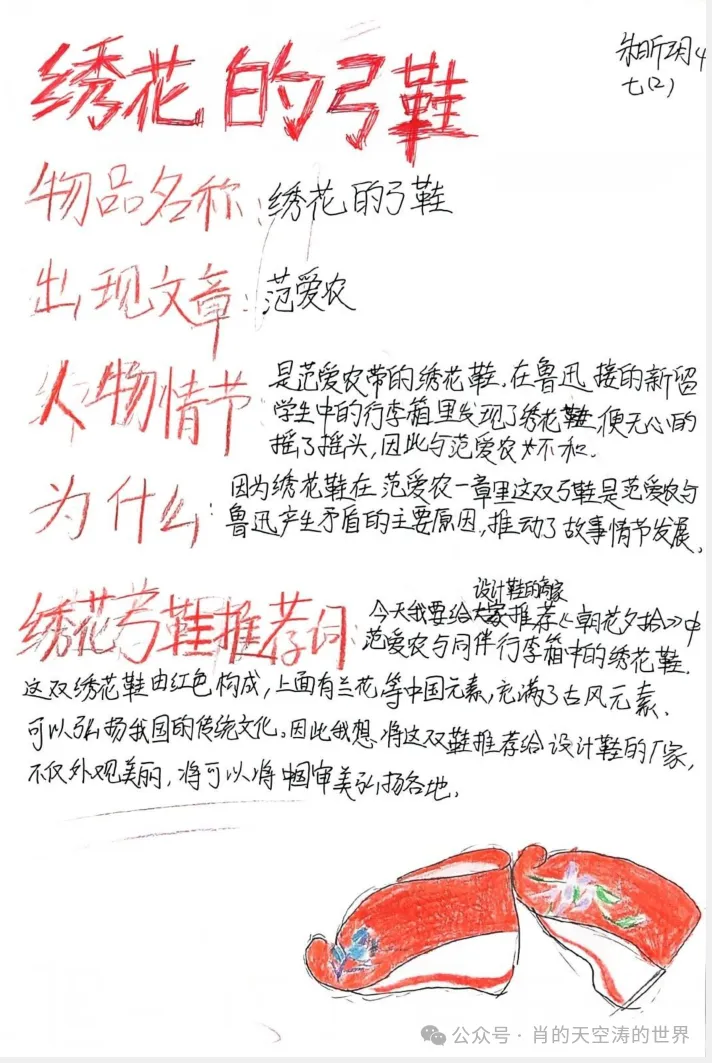 朱昕玥4
七(2)
绣花的弓鞋
物品名称:绣花的弓鞋
出现文章:范爱农
人物情节
是范爱农带的绣花鞋.在鲁迅接的新留
学生中的行李箱里发现了绣花鞋.便无心的
摇了摇头,因此与范爱农不和.
为什么:
因为绣花鞋在范爱农一章里这双弓鞋是范爱农与
鲁迅产生矛盾的主要原因,推动了故事情节发展、
绣花弓鞋推荐词:
设计鞋的商家
今天我要给推荐《朝花夕拾》中
范爱农与同伴行李箱中的绣花鞋.
这双绣花鞋由红色构成,上面有兰花,等中国元素,充满了古风元素、
可以弘扬我国的传统文化。因此我想将这双鞋推荐给设计鞋的厂家,
不仅外观美丽,将可以将中国审美弘扬各地.
公众号·肖的天空涛的世界